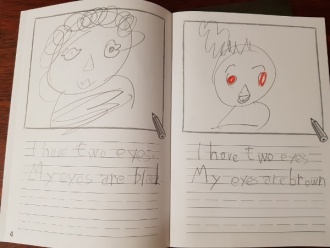 I have two eyes
My eyes are black
4
I have two eyes
My eyes are brown